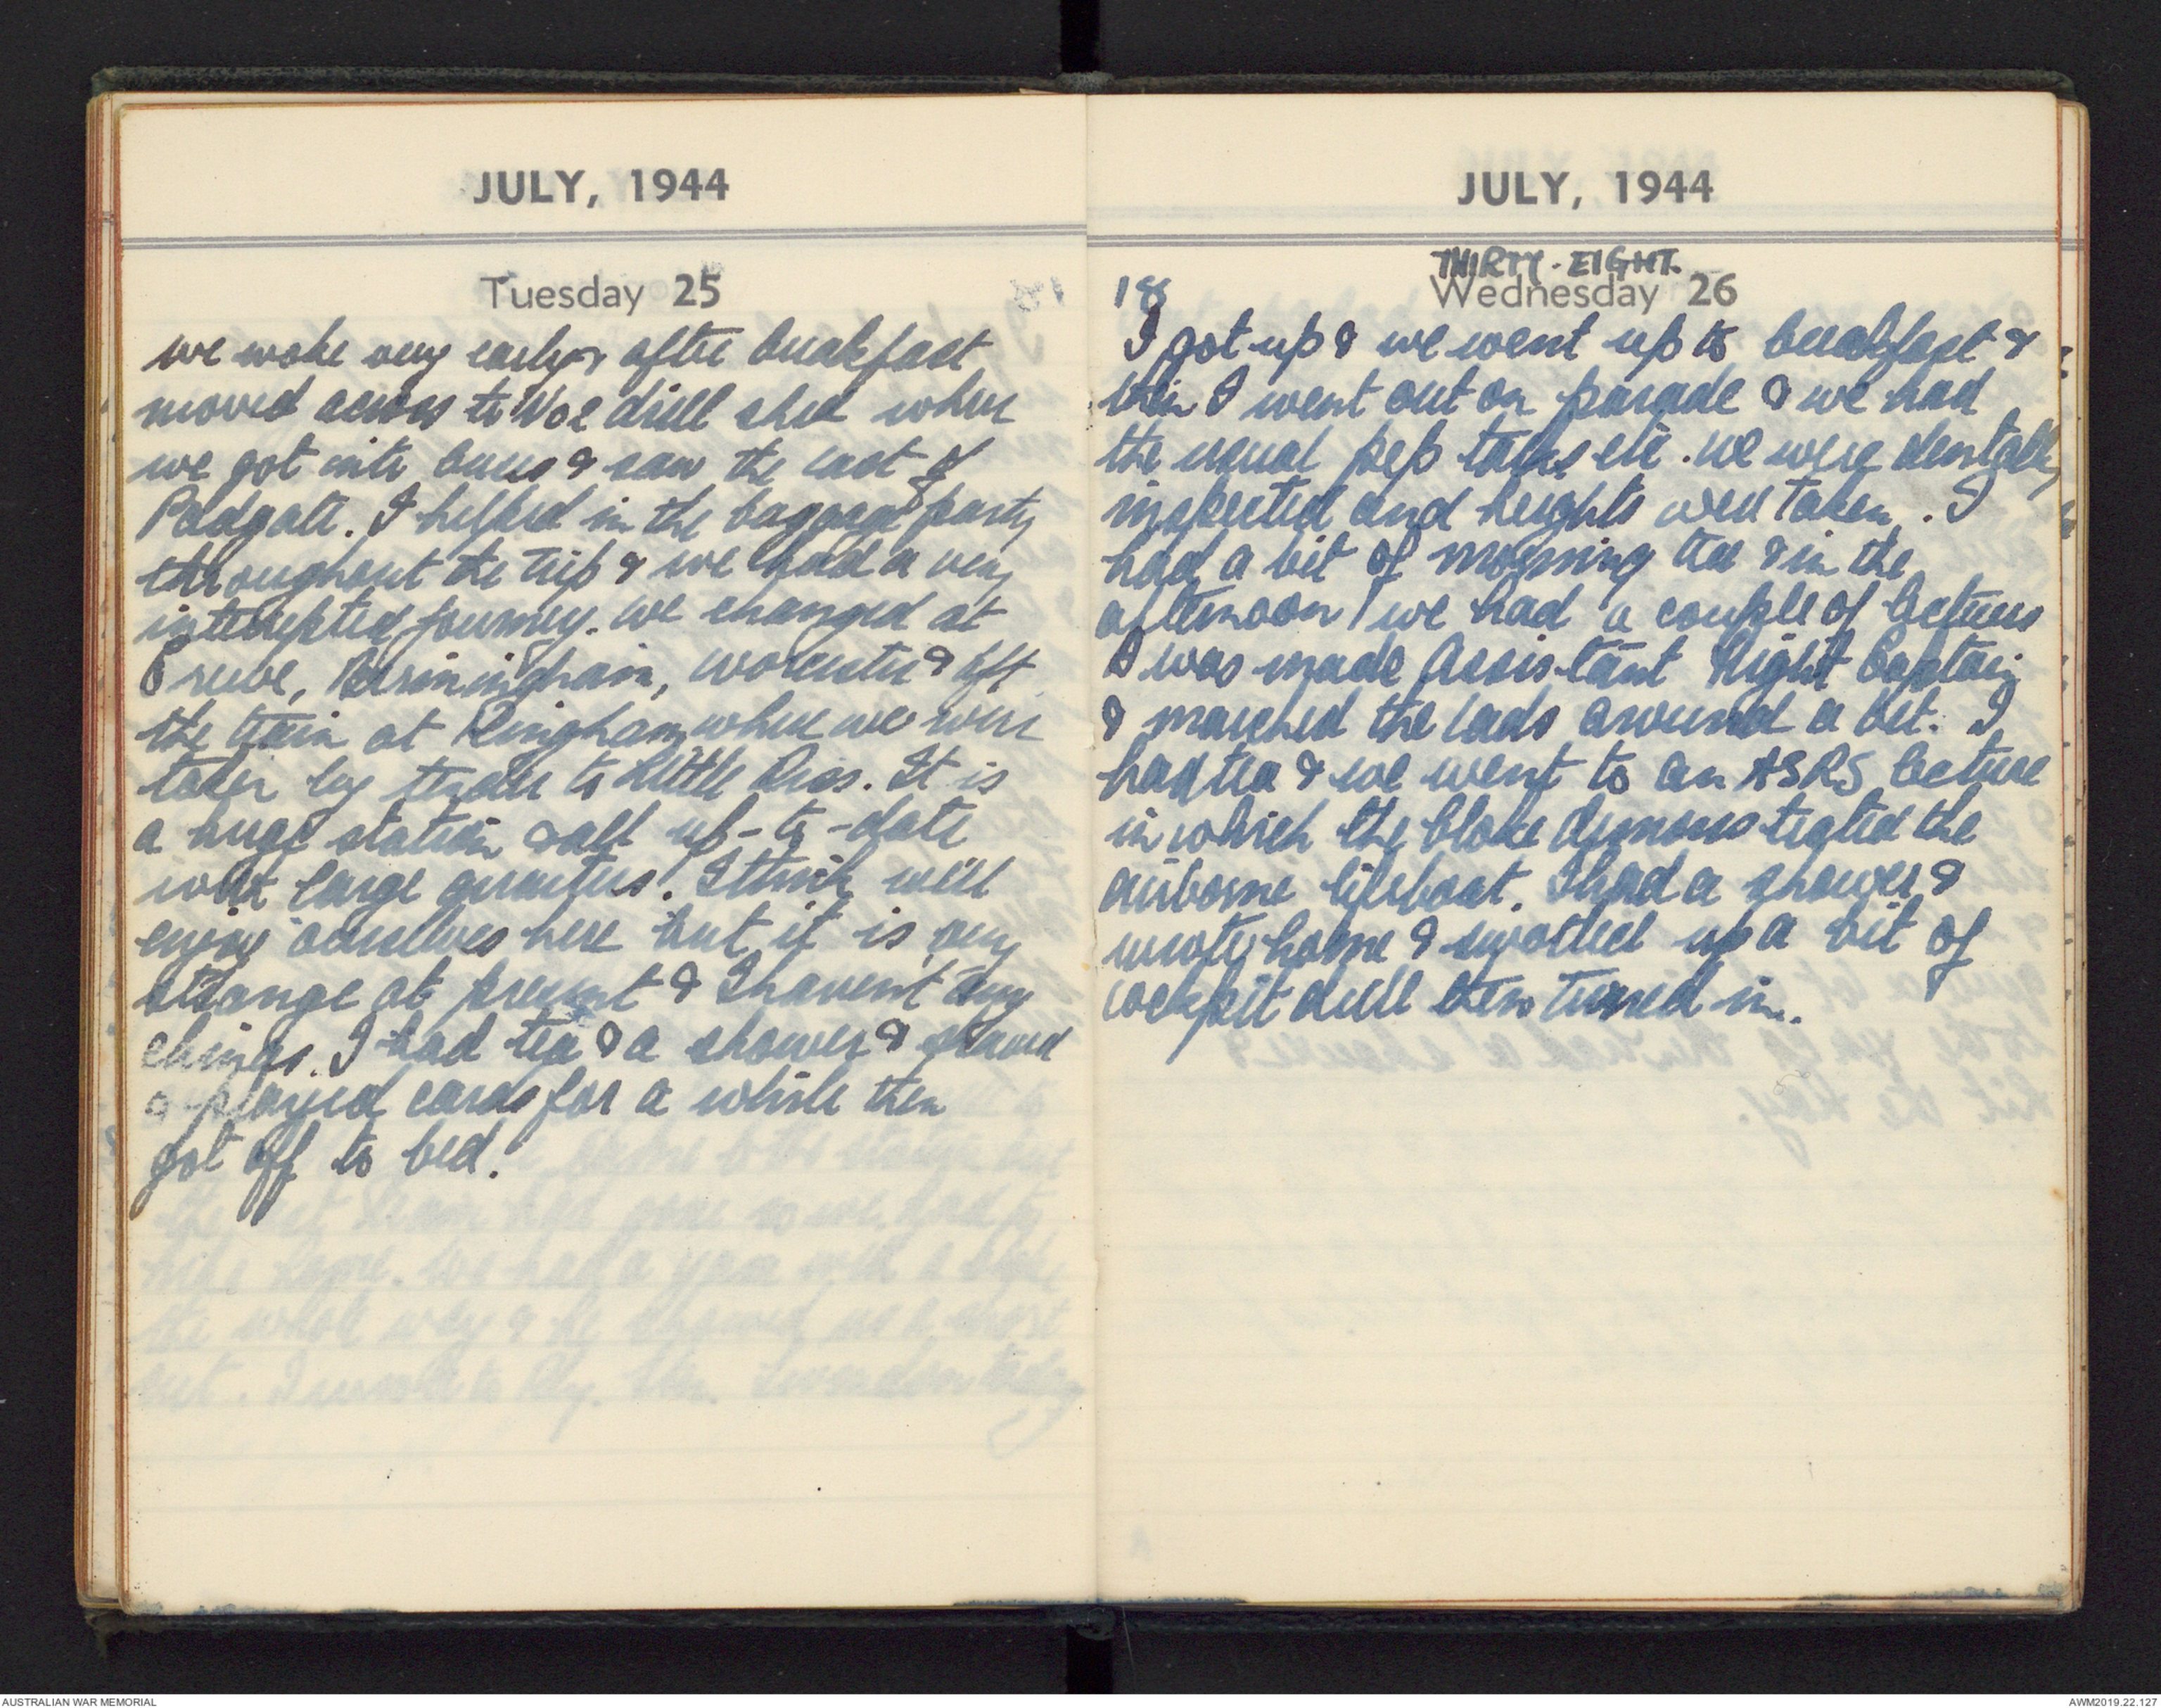 JULY, 1944
Tuesday 25
we woke very early & after breakfast
moved across to No 2 drill shed where
we got into buses & saw the last of
Padgate. I helped in the baggage party
throughout the trip & we had a very
interrupted journey. we changed at
Crewe, Birmingham, Worcester & left
the train at where we were
taken by tender to Little Riss. It is
a huge station & all up-to-date
with large quarters. I think we'll
enjoy ourselves here but it is very
strange at present & I haven't any
chinas. I had tea & a shower & shaved
& played cards for a while then
got off to bed.
JULY, 1944
THIRTY-EIGHT.
Wednesday 26
18
I got up & we went up to breakfast &
then I went out on parade & we had
the usual pep talks etc. we were dentally
inspected and heights were taken. I
had a bit of morning tea & in the
afternoon we had a couple of lectures
I was made Assistant Flight Captain
& marched the lads around a bit. I
had tea & we went to an ASRS lecture
in which the bloke demonstrated the
airborne lifeboat. I had a shower &
wrote home & swotted up a bit of
cockpit drill then turned in.
AUSTRALIAN WAR MEMORIAL
AWM2019.22.127